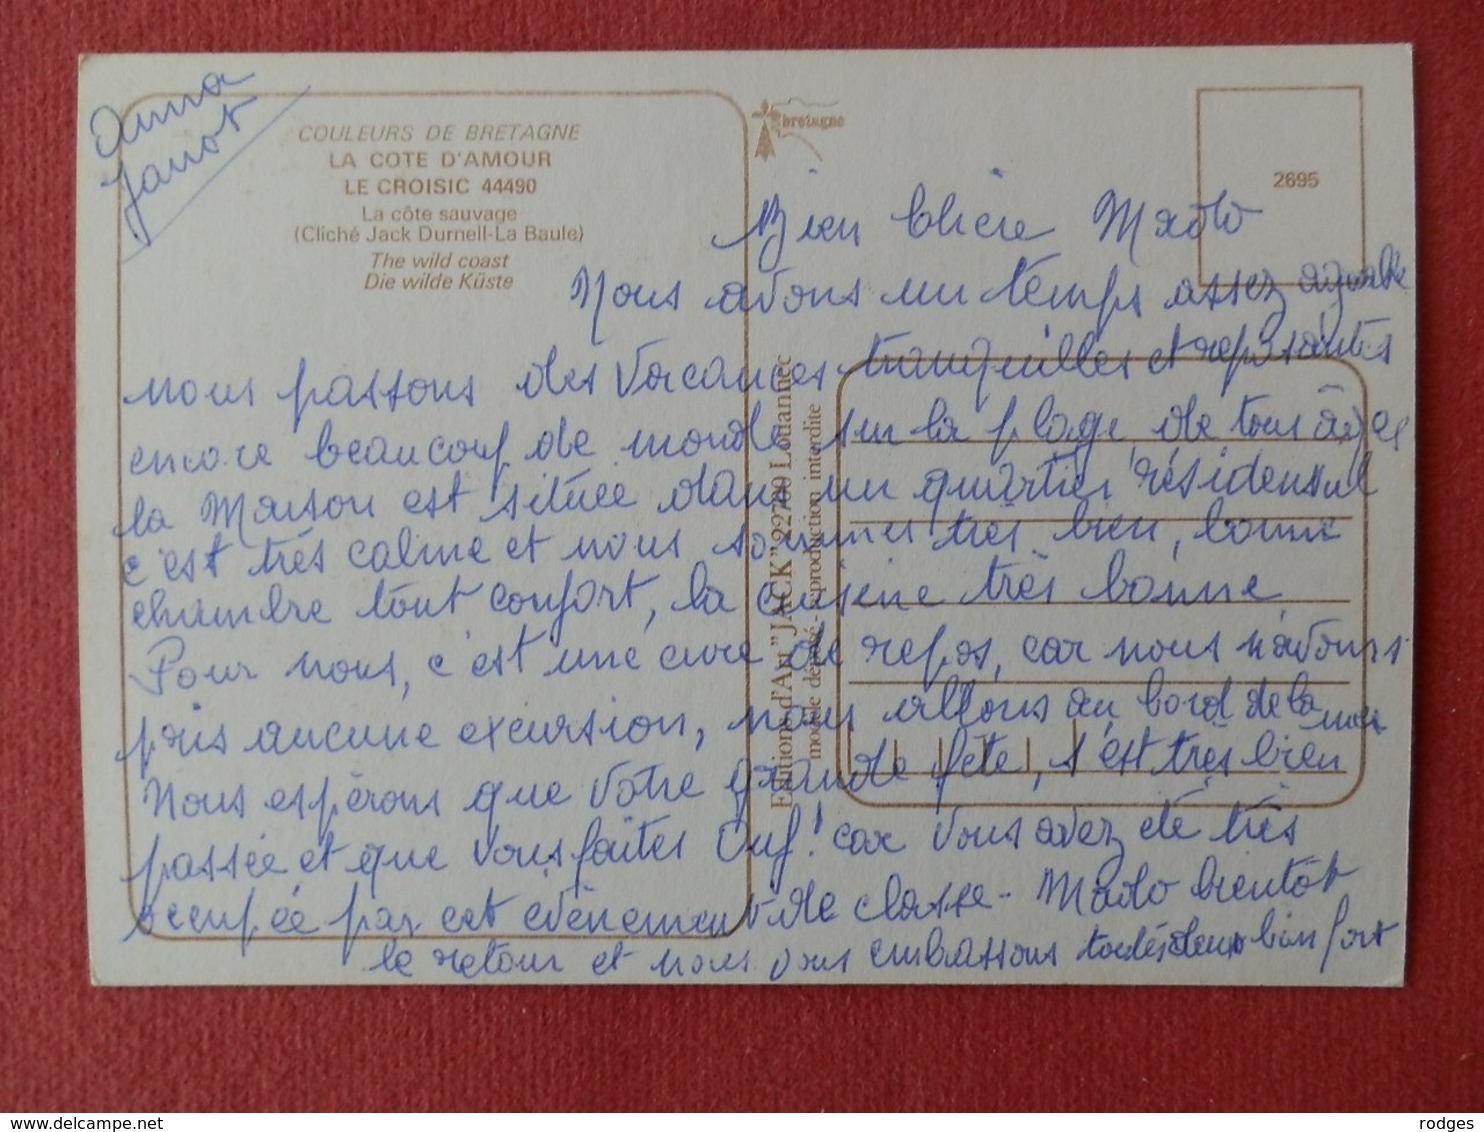 Anna
Janot
COULEURS DE BRETAGNE
LA COTE D'AMOUR
LE CROISIC 44490
La côte sauvage
(Cliché Jack Durnell-La Baule)
The wild coast
Die wilde Küste
bretagne
2695
Editions d'Art "JACK" 22700 Louannec
modèle déposé - reproduction interdite
Bien chère Mado
Nous avons un temps assez agréable
nous passons des vacances tranquilles et reposantes
encore beaucoup de monde sur la plage, de tous âges
la Maison est située dans un quartier résidensiel
c'est très calme et nous sommes très bien, bonne
chambre tout confort, la cuisine très bonne
Pour nous, c'est une cure de repos, car nous n'avons
pris aucune excursion, nous allons au bord de la mer
Nous espérons que votre grande fête, s'est très bien
passée et que vous faites Ouf! car vous avez été très
occupée par cet évènement de classe - Mado bientôt
le retour et nous vous embrassons toutes deux bien fort
delcampe.net
rodges